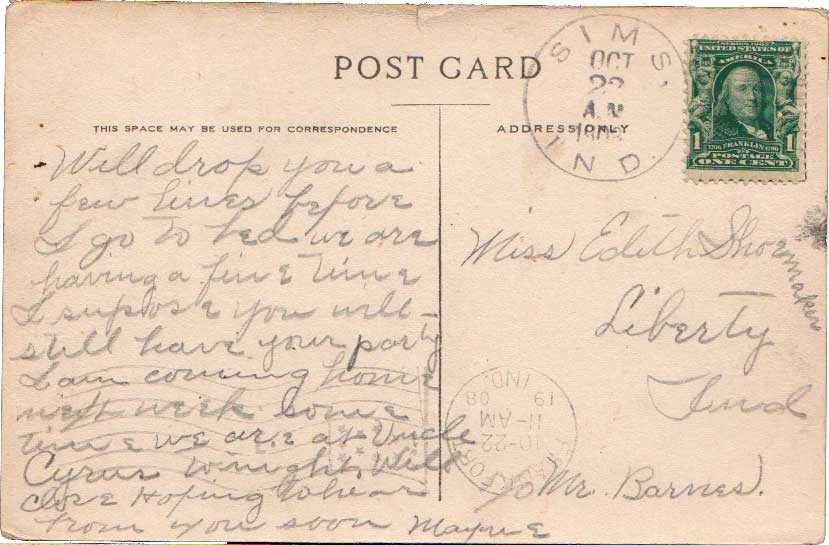 POST CARD
THIS SPACE MAY BE USED FOR CORRESPONDENCE
ADDRESS ONLY
SIMS,
OCT
22
A.M
IND
SERIES 1902
UNITED STATES OF
AMERICA
1706 FRANKLIN 1790
POSTAGE
1 ONE CENT 1
Will drop you a
few lines before
I go to bed we are
having a fine time
I supose you will
still have your party
I am coming home
next week some
time we are at Uncle
Cyrus tonight, Will
close Hoping to hear
from you soon Mayme
Miss Edith Shoemaker
Liberty
Ind
c/o Mr. Barnes.
FRANKFORT
10-22
11-AM
19 08
IND.